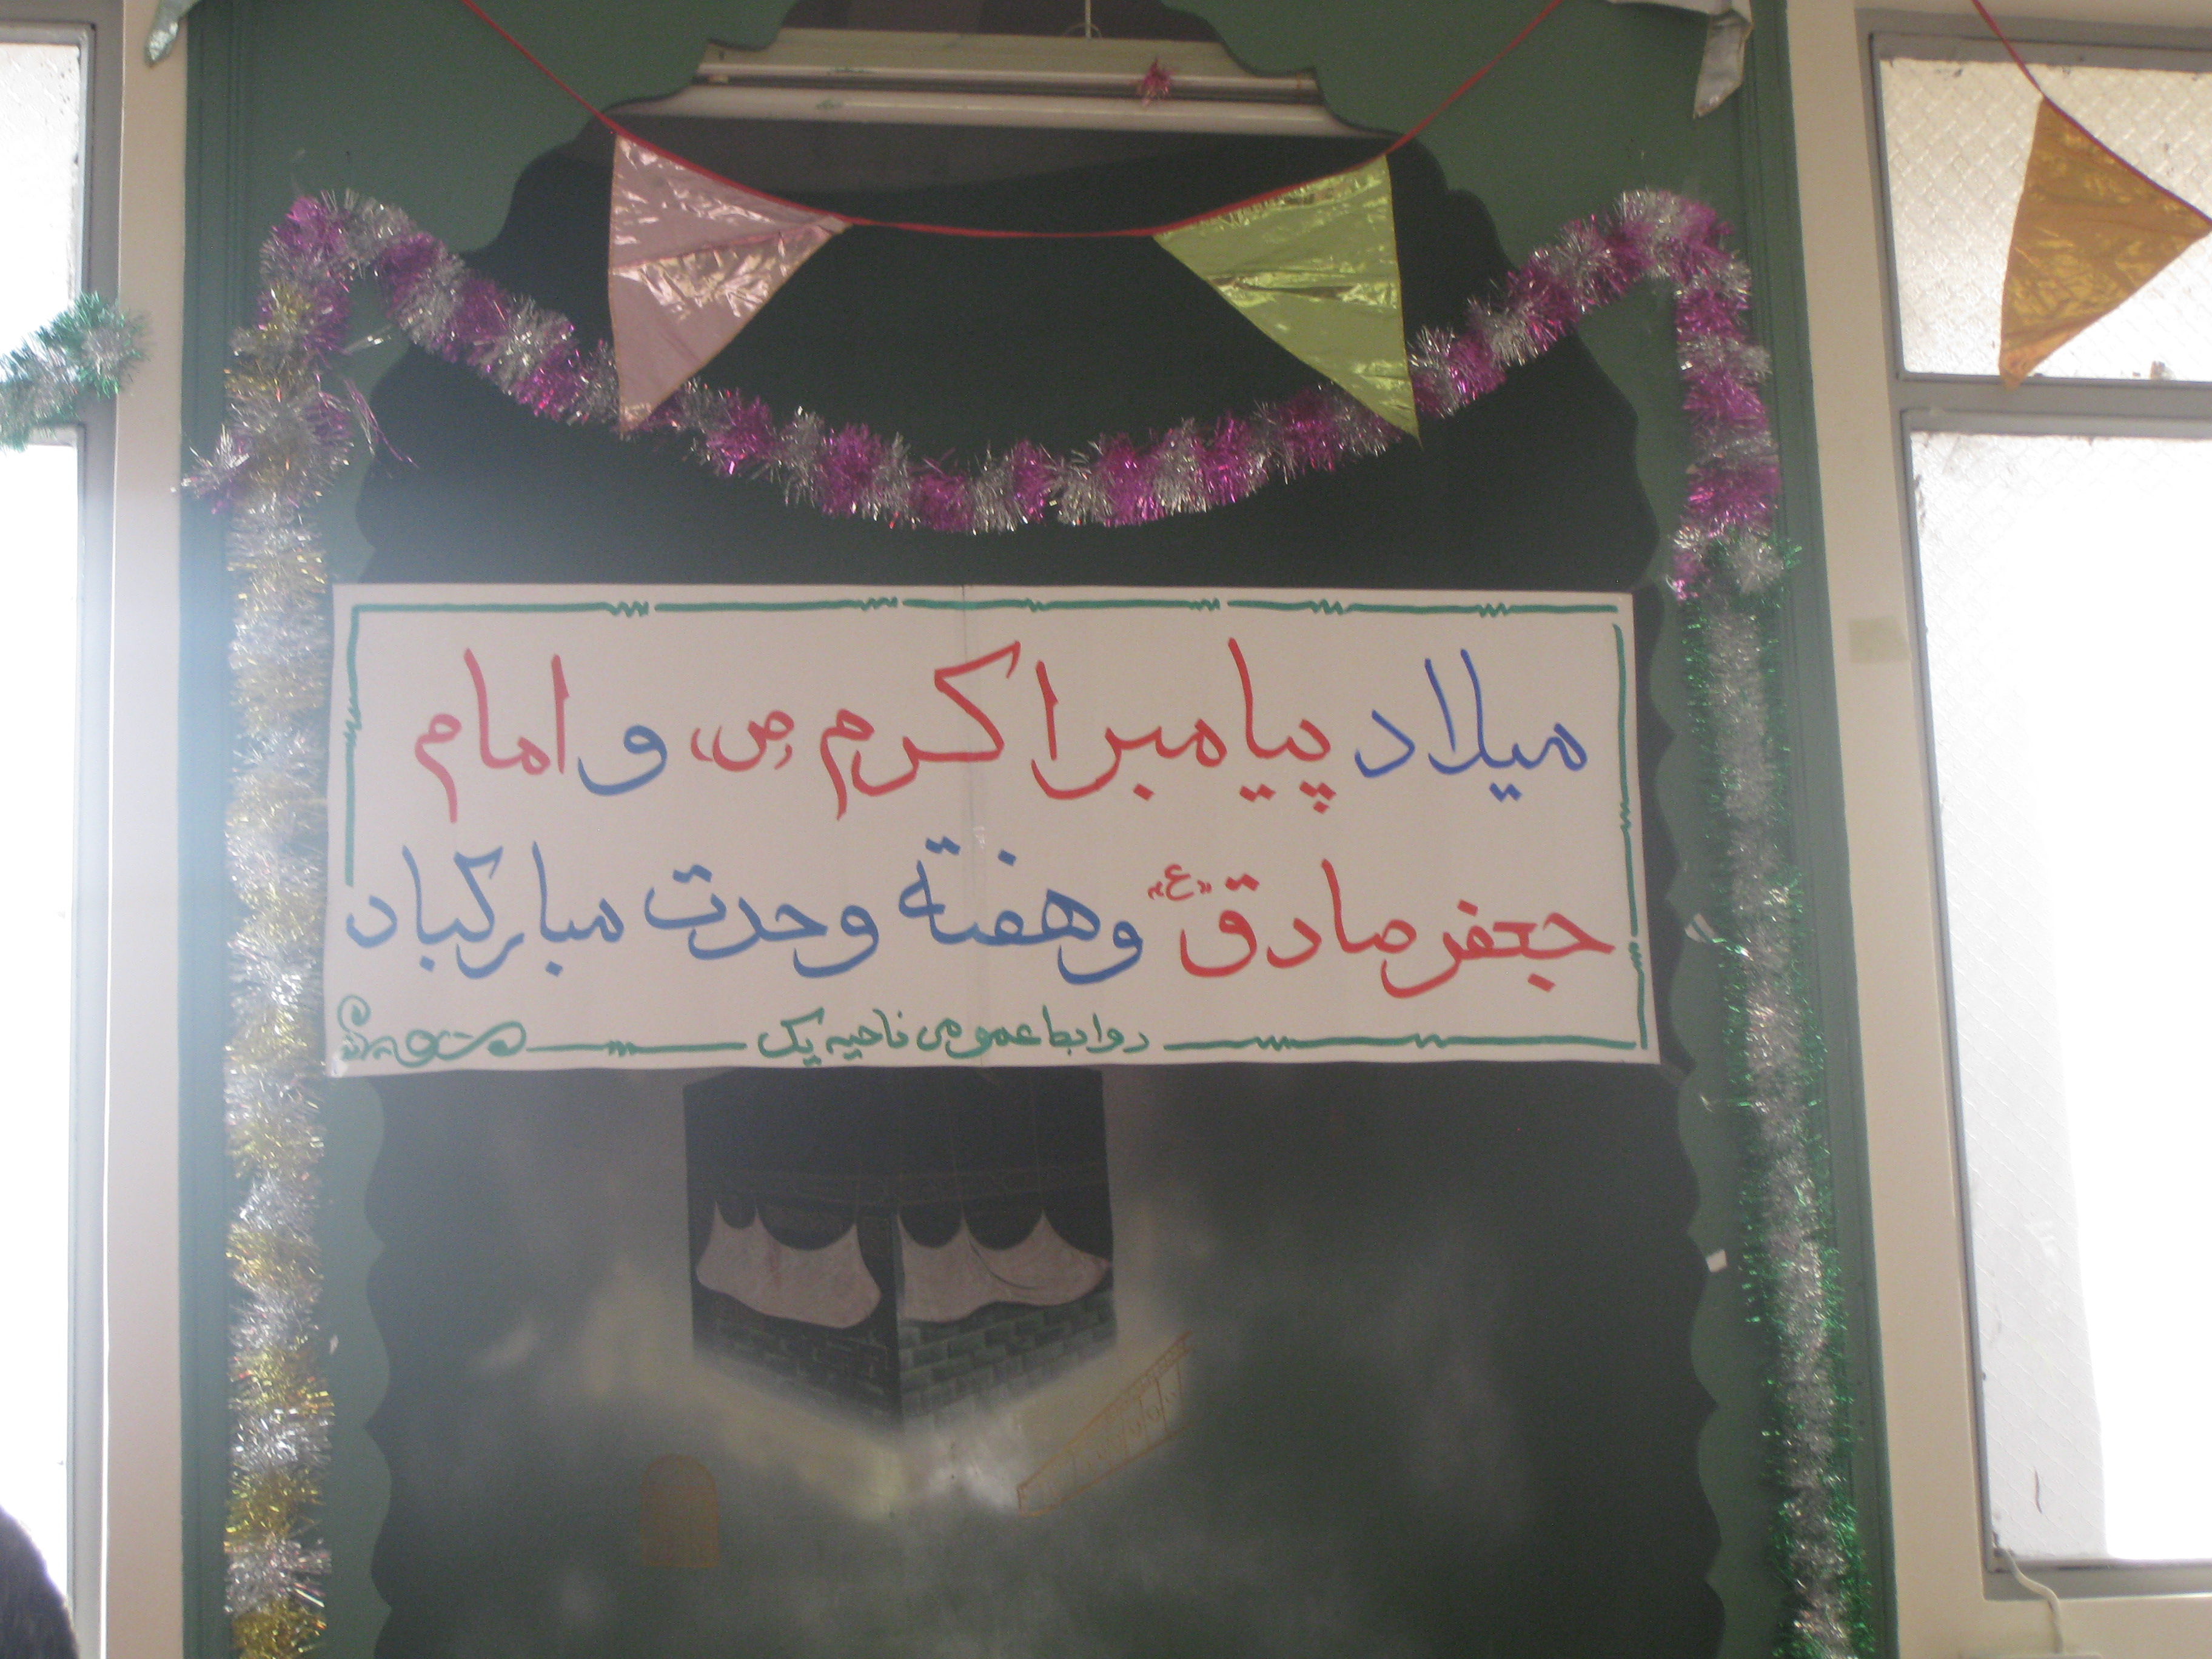 میلاد پیامبر اکرم (ص) و امام
جعفر صادق «ع» و هفته وحدت مبارکباد
روابط عمومی ناحیه یک